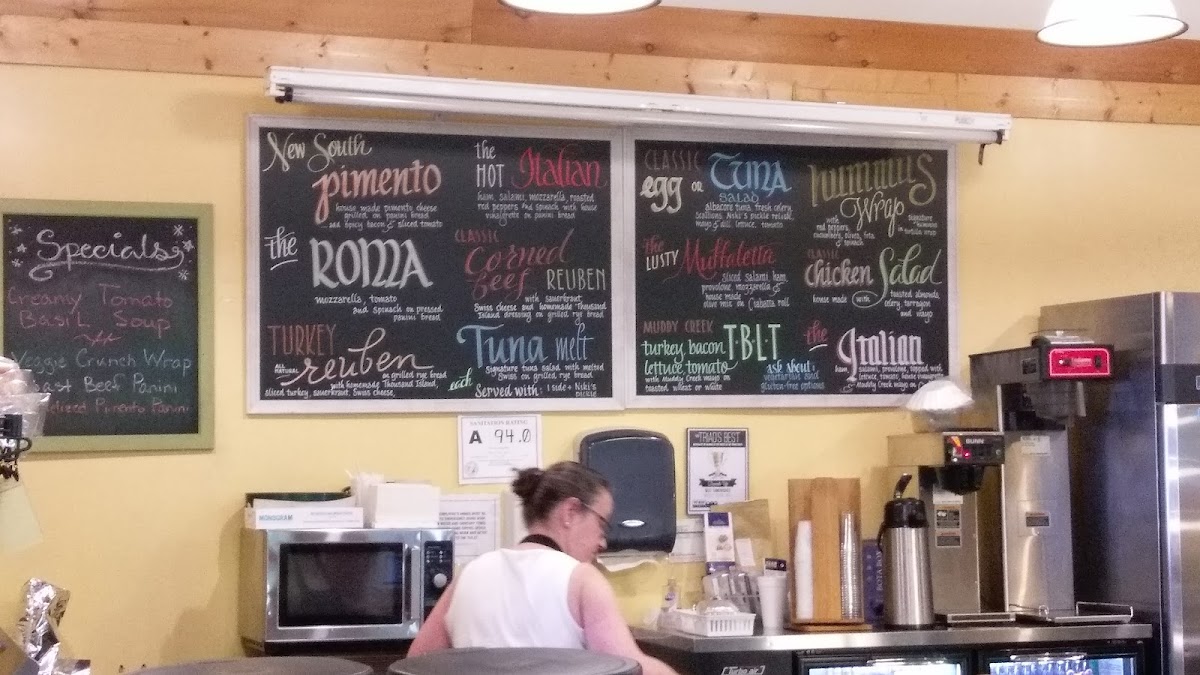 Specials
Creamy Tomato
Basil Soup
Veggie Crunch Wrap
Beef Panini
Pimento Panini
New South
Pimento
house made pimento cheese
grilled on panini bread
and spicy bacon & sliced tomato
the HOT Italian
ham, salami, mozzarella, roasted
red peppers and spinach with house
vinaigrette on panini bread
the
ROMA
mozzarella, tomato
and spinach on pressed
panini bread
CLASSIC
Corned
beef REUBEN
with sauerkraut,
Swiss cheese and homemade Thousand
Island dressing on grilled rye bread
TURKEY
ALL NATURAL reuben
on grilled rye bread
with homemade Thousand Island,
sliced turkey, sauerkraut, Swiss cheese,
Tuna melt
Signature tuna salad with melted
Swiss on grilled rye bread.
each Served with: 1 side + Niki's
pickle
CLASSIC
egg OR Tuna
SALAD
albacore tuna, fresh celery,
scallions, Niki's pickle relish,
mayo & dill, lettuce, tomato
hummus
Wrap
with
red peppers,
cucumbers, olives, feta
& spinach
signature
hummus
in tortilla wrap
the
LUSTY Muffaletta
sliced salami, ham,
provolone, mozzarella &
house made
olive mix on Ciabatta roll
CLASSIC
Chicken Salad
house made with toasted almonds,
celery, tarragon
and mayo
MUDDY CREEK T·B·L·T
turkey, bacon
lettuce, tomato
with Muddy Creek mayo on
toasted wheat or white
ask about:
vegetarian and
gluten-free options
the Italian
ham, salami, provolone, topped with
lettuce, tomato, house vinaigrette
& Muddy Creek mayo on
SANITATION RATING
A 94.0
TRIAD'S BEST
MONOGRAM
BUNN
Turbo air